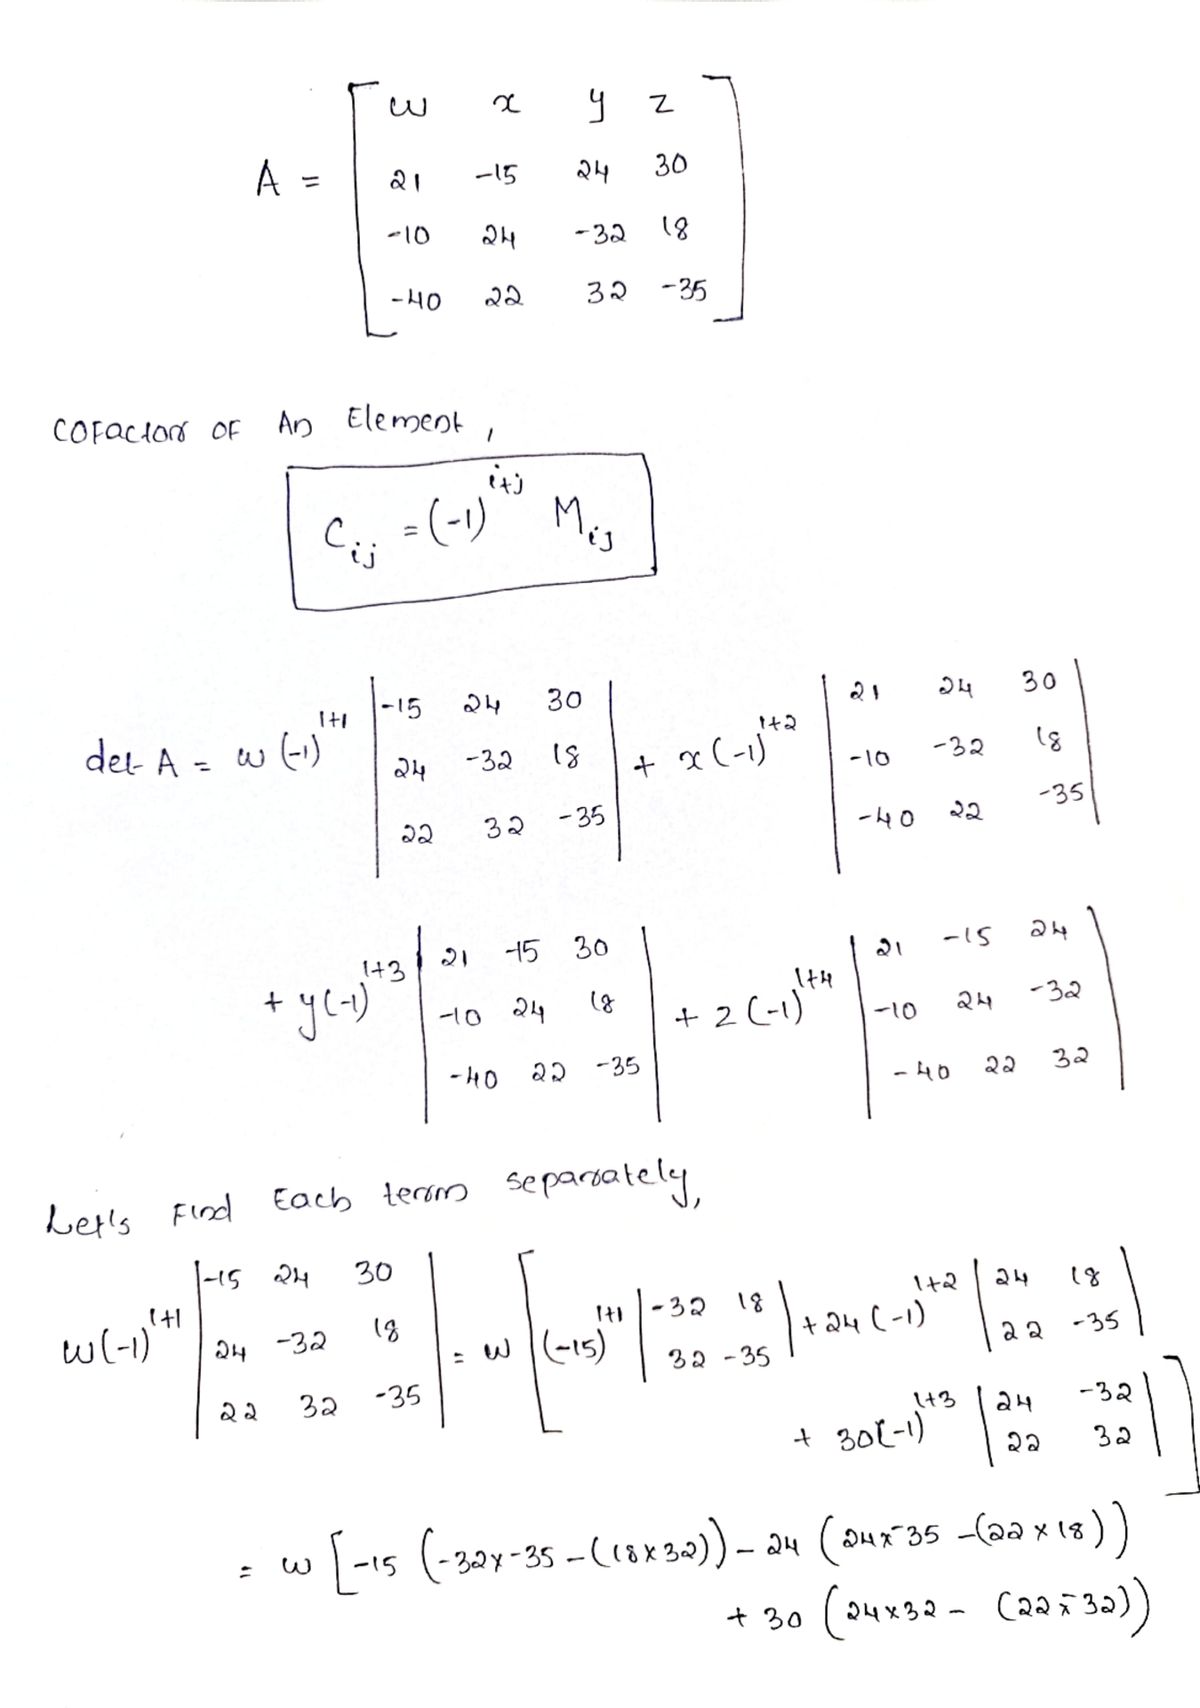 A = [ w x y z
21 -15 24 30
-10 24 -32 18
-40 22 32 -35 ]
Cofactor of An Element,
C_ij = (-1)^{i+j} M_ij
det A = w (-1)^{1+1} | -15 24 30 ; 24 -32 18 ; 22 32 -35 | + x (-1)^{1+2} | 21 24 30 ; -10 -32 18 ; -40 22 -35 |
+ y (-1)^{1+3} | 21 -15 30 ; -10 24 18 ; -40 22 -35 | + z (-1)^{1+4} | 21 -15 24 ; -10 24 -32 ; -40 22 32 |
Let's Find Each term separately,
w (-1)^{1+1} | -15 24 30 ; 24 -32 18 ; 22 32 -35 | = w [ (-15)^{1+1} | -32 18 ; 32 -35 | + 24 (-1)^{1+2} | 24 18 ; 22 -35 |
+ 30 (-1)^{1+3} | 24 -32 ; 22 32 | ]
= w [ -15 (-32 x -35 - (18 x 32)) - 24 (24 x -35 - (22 x 18))
+ 30 (24 x 32 - (22 x -32))